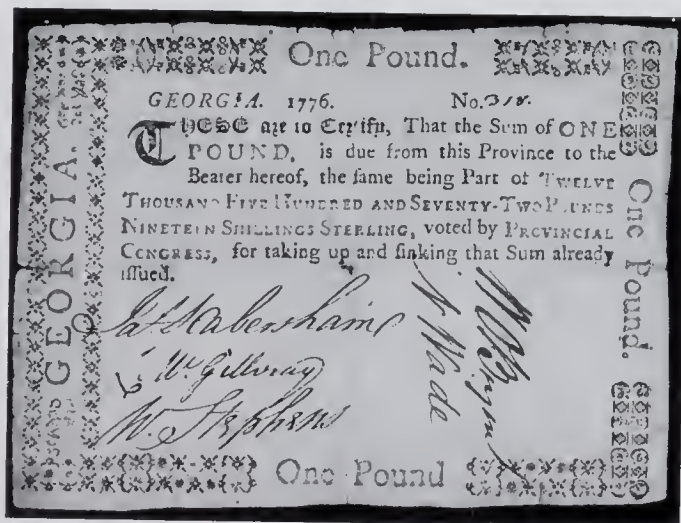 One Pound.
GEORGIA. 1776. No. 318.
THESE are to Certify, That the Sum of ONE
POUND, is due from this Province to the
Bearer hereof, the same being Part of TWELVE
THOUSAND FIVE HUNDRED AND SEVENTY-TWO POUNDS
NINETEEN SHILLINGS STERLING, voted by PROVINCIAL
CONGRESS, for taking up and sinking that Sum already
issued.
Jas Habersham
Wm Gillivray
W. Stephens
N Wade
One Pound
GEORGIA.
One Pound.